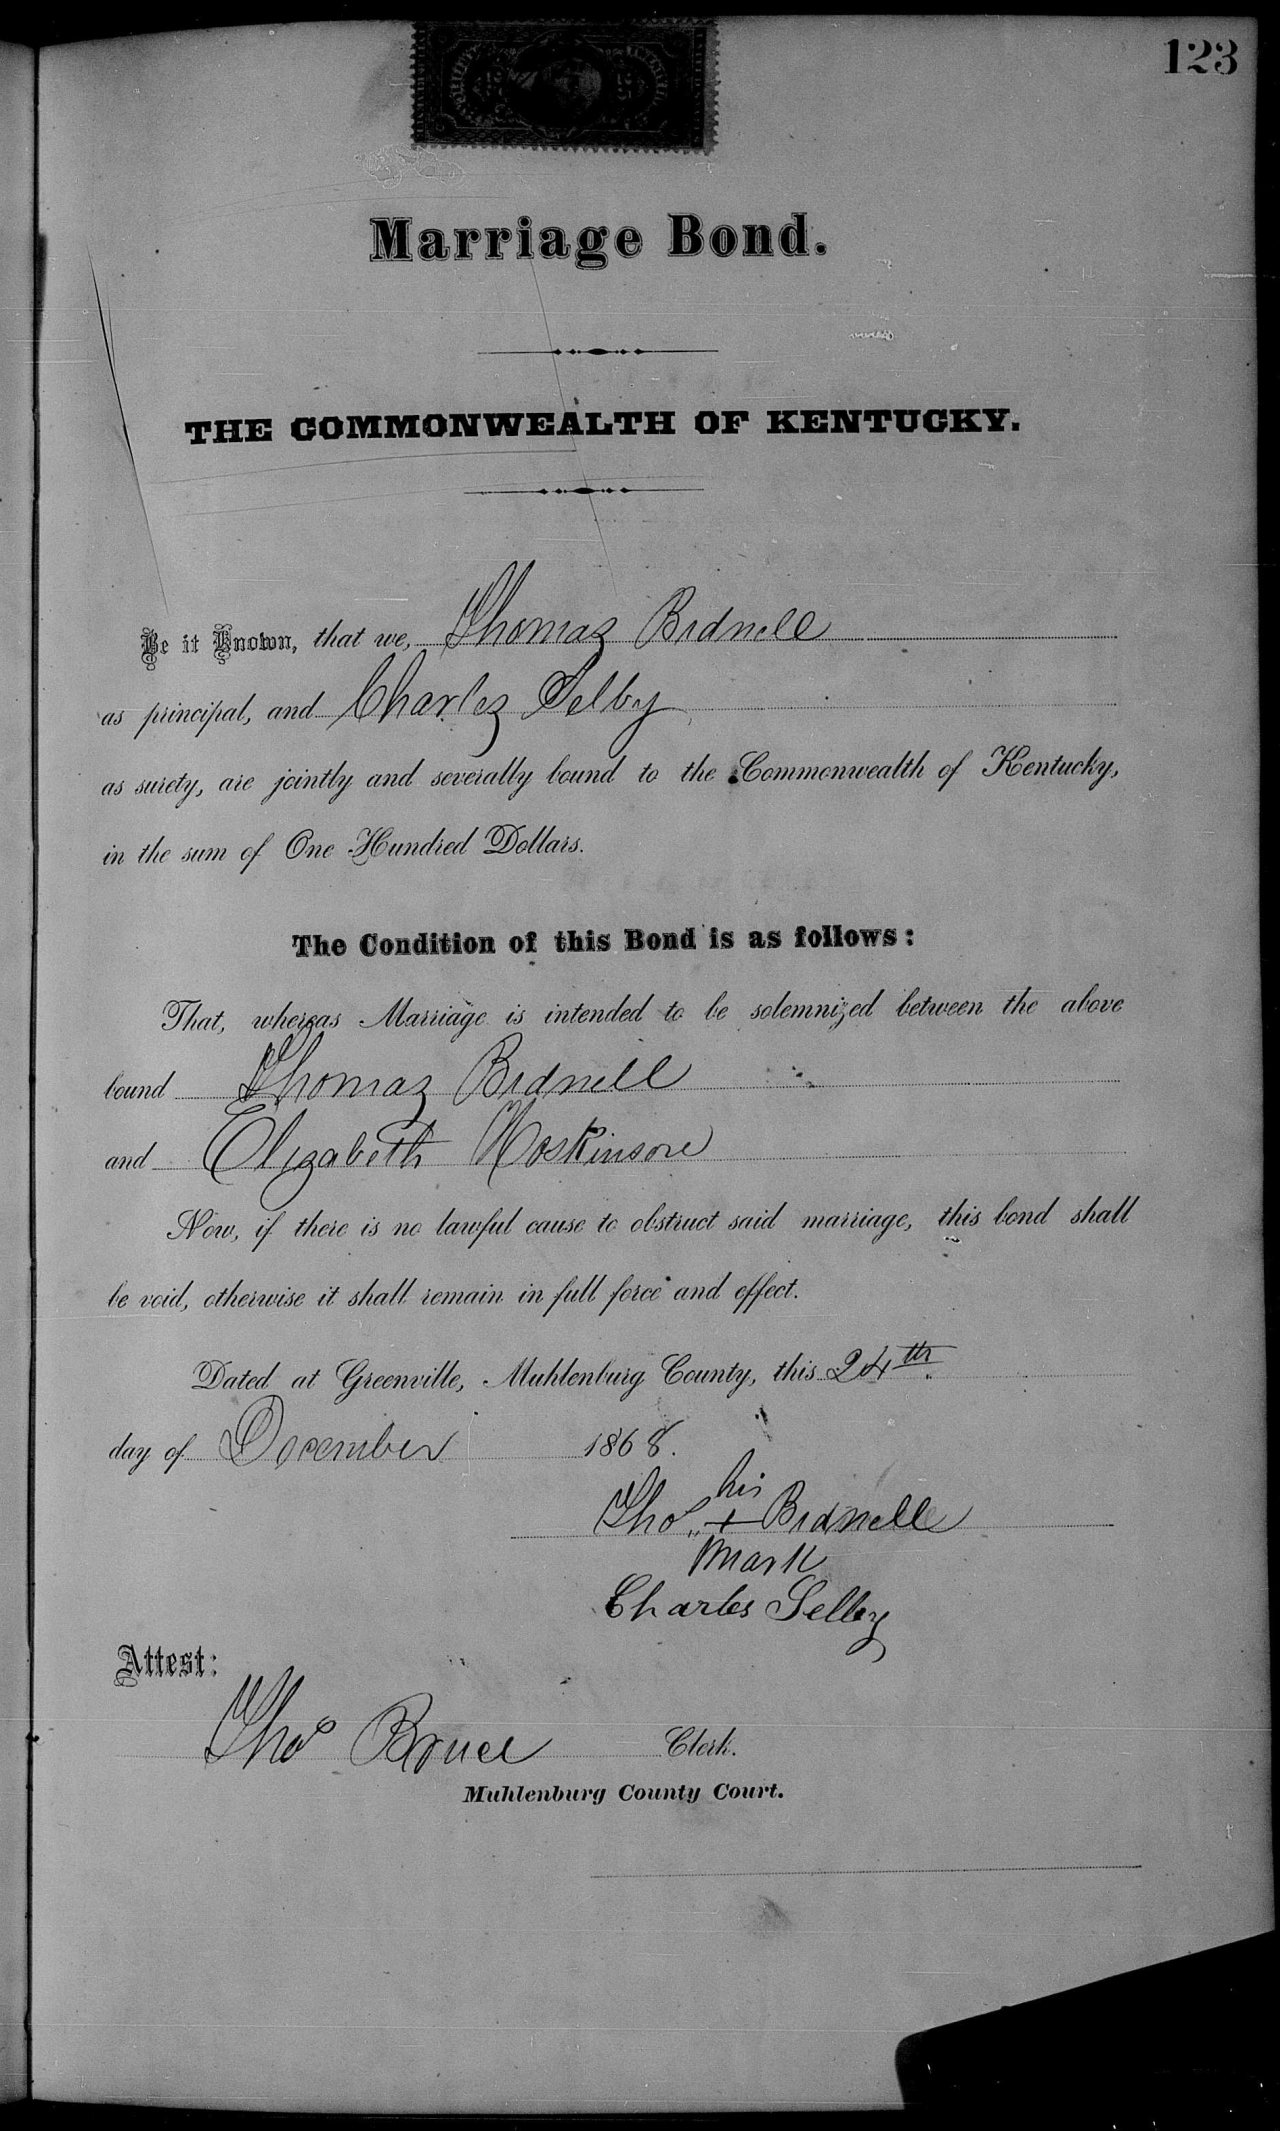 123
Marriage Bond.
THE COMMONWEALTH OF KENTUCKY.
Be it Known, that we, Thomas Bidnell
as principal, and Charles Selby
as surety, are jointly and severally bound to the Commonwealth of Kentucky,
in the sum of One Hundred Dollars.
The Condition of this Bond is as follows:
That, whereas Marriage is intended to be solemnized between the above
bound Thomas Bidnell
and Elizabeth Hoskinson
Now, if there is no lawful cause to obstruct said marriage, this bond shall
be void, otherwise it shall remain in full force and effect.
Dated at Greenville, Muhlenburg County, this 24th
day of December 1868.
his
Thos + Bidnell
mark
Charles Selby
Attest:
Thos Bruce Clerk.
Muhlenburg County Court.